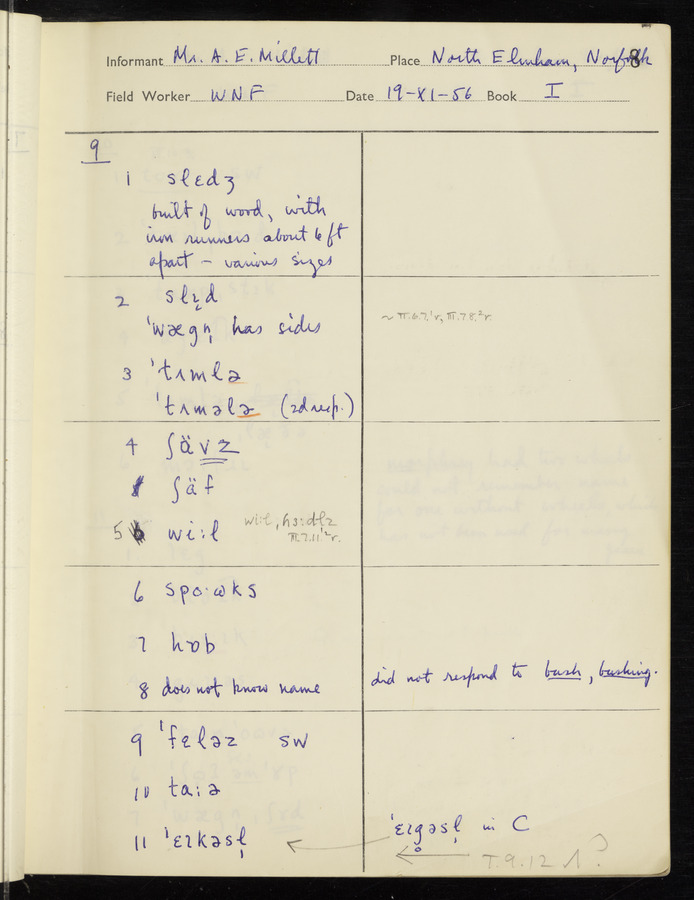 8
Informant Mr. A. E. Millett Place North Elmham, Norfolk
Field Worker WNF Date 19-XI-56 Book I
9
1 slɛdʒ
built of wood, with
iron runners about 6 ft
apart – various sizes
2 slɪ̨d
ˈwægn̩ has sides ~ II.6.7.¹r, III.7.8.²r.
3 ˈtʌmlə
ˈtʌmələ (2d resp.)
4 ʃävz
ʃäf
5 wi:l
6 spo·ωks
7 hɒb
8 does not know name did not respond to bush, bushing.
9 ˈfɛləz SW
10 ta:ə
11 ˈɛɪkəsɫ̩ ˈɛɪg̊əsɫ̩ in C
I.9.12